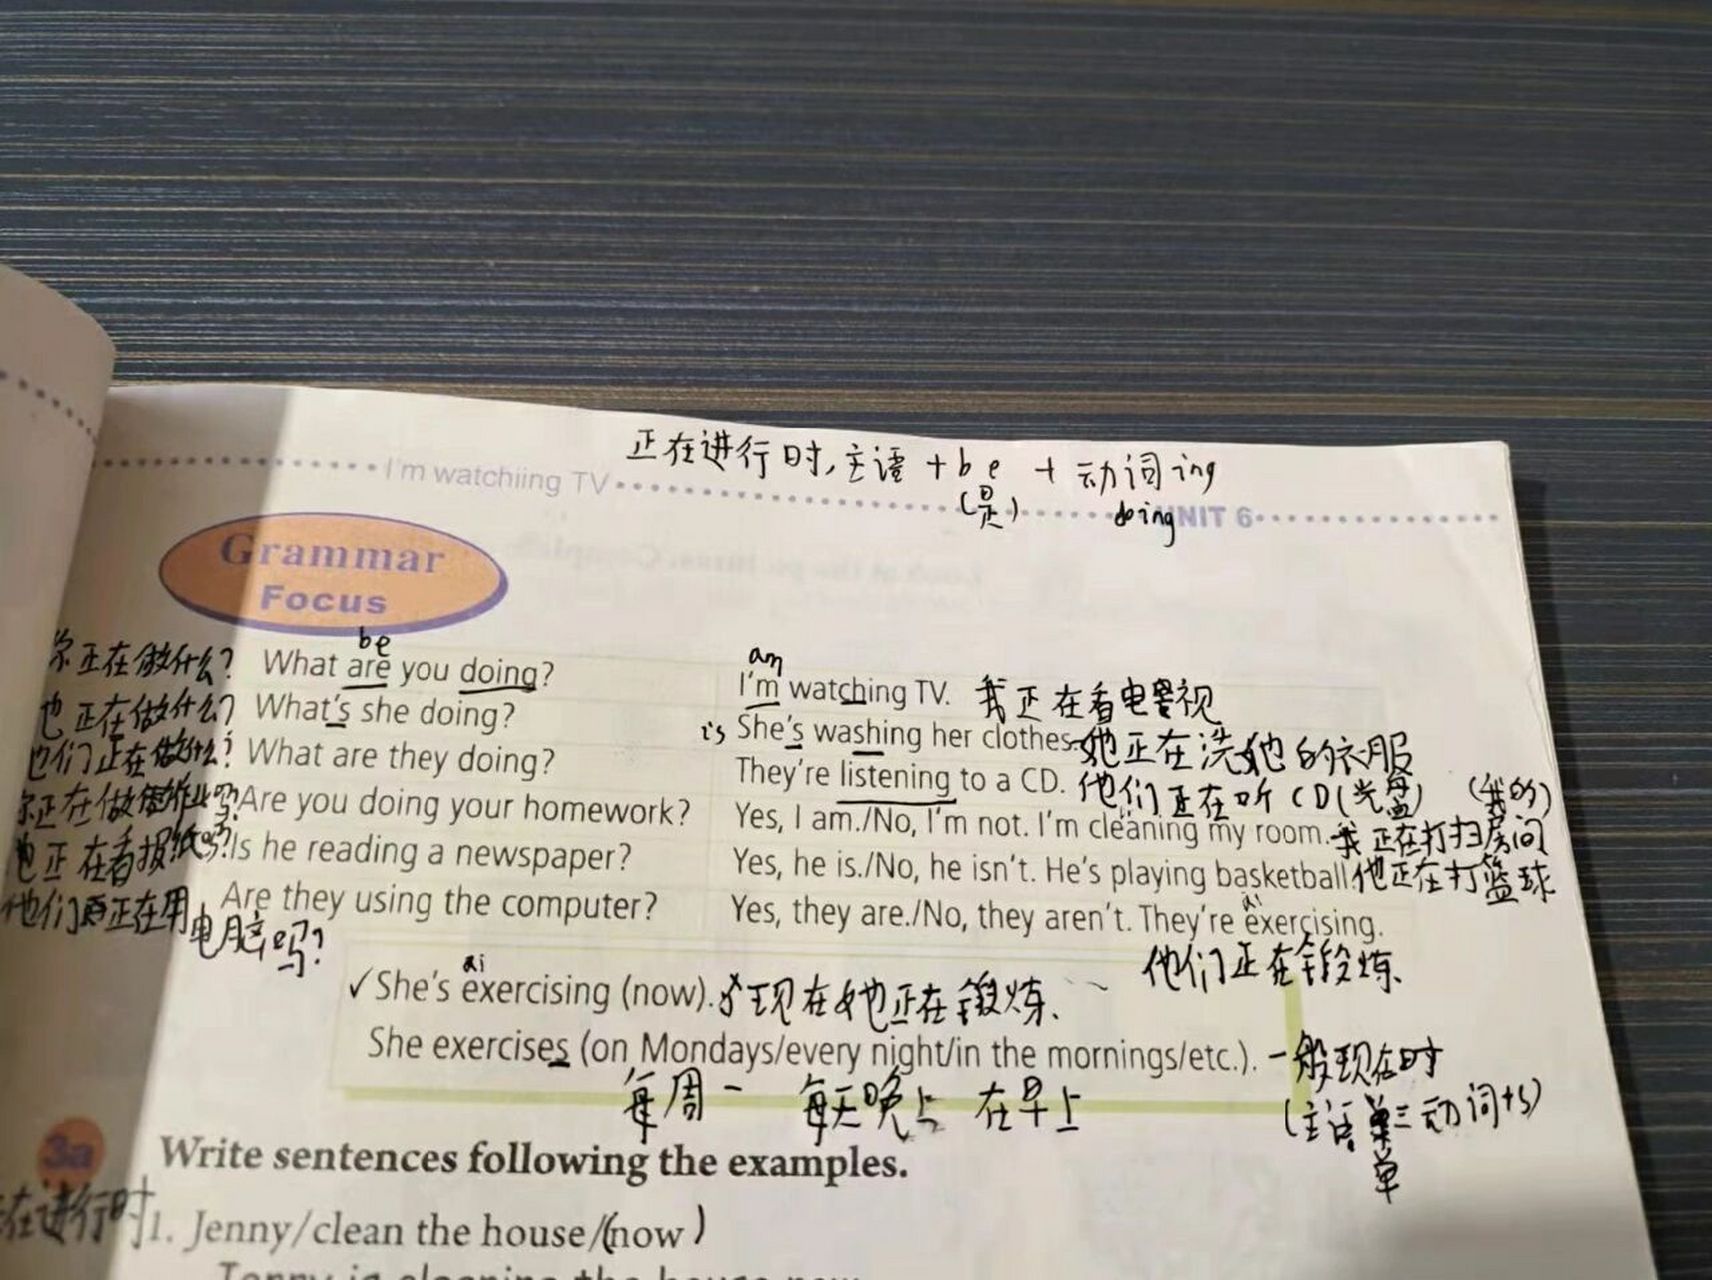 正在进行时,主语+be+动词ing
I'm watchiing TV (是) doing UNIT 6
Grammar
Focus
be
正在做什么? What are you doing?
am
I'm watching TV. 我正在看电视
也正在做什么? What's she doing?
is She's washing her clothes. 她正在洗她的衣服
他们正在做什么? What are they doing?
They're listening to a CD. 他们正在听CD(光盘) (我的)
你正在做作业吗? Are you doing your homework?
Yes, I am./No, I'm not. I'm cleaning my room. 我正在打扫房间
也正在看报纸吗? Is he reading a newspaper?
Yes, he is./No, he isn't. He's playing basketball. 他正在打篮球
他们正在用电脑吗? Are they using the computer?
ai
Yes, they are./No, they aren't. They're exercising.
他们正在锻炼.
ai
✓She's exercising (now). 现在她正在锻炼.
She exercises (on Mondays/every night/in the mornings/etc.). 一般现在时
每周一 每天晚上 在早上 (主语单三动词+s)
单
3a Write sentences following the examples.
在进行时 1. Jenny/clean the house/(now)
Jenny is cleaning the house now